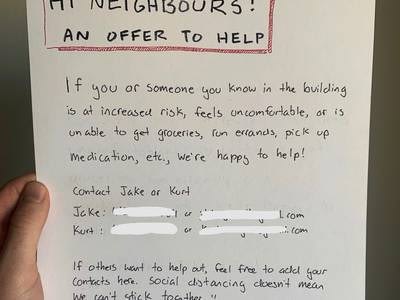 HI NEIGHBOURS!
AN OFFER TO HELP
If you or someone you know in the building
is at increased risk, feels uncomfortable, or is
unable to get groceries, run errands, pick up
medication, etc., we're happy to help!
Contact Jake or Kurt
Jake: or .com
Kurt: or .com
If others want to help out, feel free to add your
contacts here. Social distancing doesn't mean
we can't stick together "